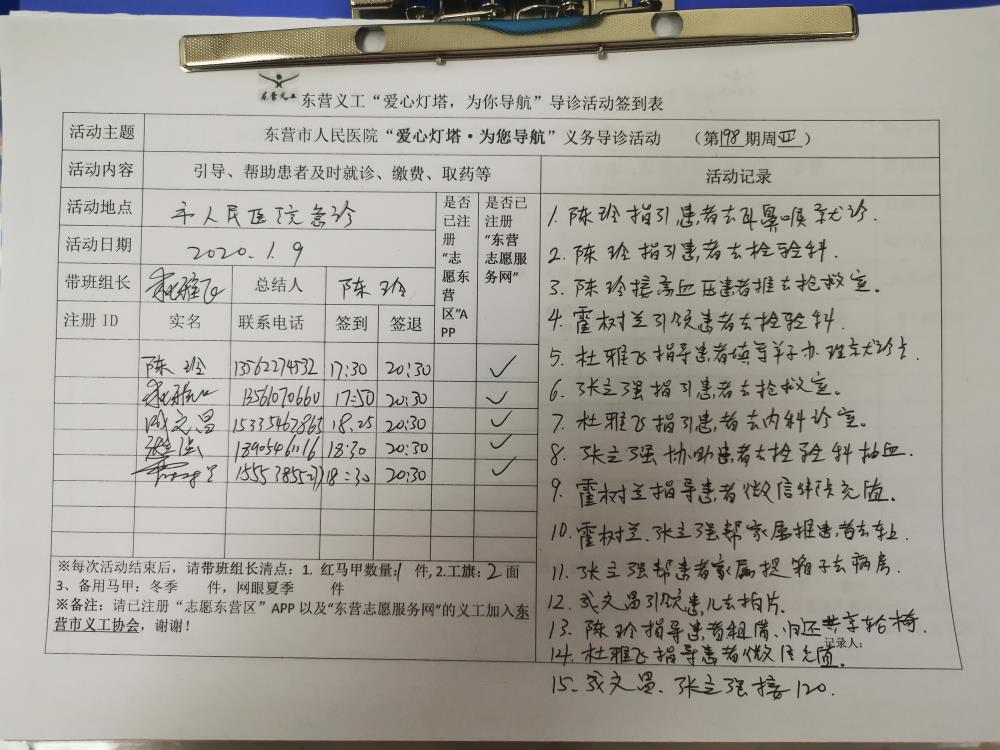 东营义工
东营义工“爱心灯塔，为你导航”导诊活动签到表
活动主题 东营市人民医院“爱心灯塔·为您导航”义务导诊活动 （第198期周四）
活动内容 引导、帮助患者及时就诊、缴费、取药等
活动记录
活动地点 市人民医院急诊
活动日期 2020.1.9
是否已注册“志愿东营区”APP
是否已注册“东营志愿服务网”
带班组长 杜雅飞 总结人 陈玲
注册 ID 实名 联系电话 签到 签退
陈玲 13562274532 17:30 20:30 ✓
杜雅飞 13561070660 17:50 20:30 ✓
成文昌 15335462865 18.25 20:30 ✓
张立强 13905461116 18:30 20:30 ✓
18:30 20:30 ✓
※每次活动结束后，请带班组长清点：1. 红马甲数量:1 件, 2.工旗: 2 面
3、备用马甲：冬季 件，网眼夏季 件
※备注：请已注册“志愿东营区”APP 以及“东营志愿服务网”的义工加入东
营市义工协会，谢谢！
1. 陈玲指引患者去耳鼻喉就诊.
2. 陈玲指引患者去检验科.
3. 陈玲接高血压患者推去抢救室。
4. 霍树兰引领患者去检验科.
5. 杜雅飞指导患者填写单子办理就诊卡
6. 张立强指引患者去抢救室。
7. 杜雅飞指引患者去内科诊室。
8. 张立强协助患者去检验科抽血.
9. 霍树兰指导患者微信住院充值.
10. 霍树兰、张立强帮家属推患者去车上
11. 张立强帮患者家属提箱子去病房.
12. 成文昌引领患儿去拍片.
13. 陈玲指导患者租借、归还共享轮椅.
记录人：
14. 杜雅飞指导患者微信充值。
15. 成文昌、张立强接120.